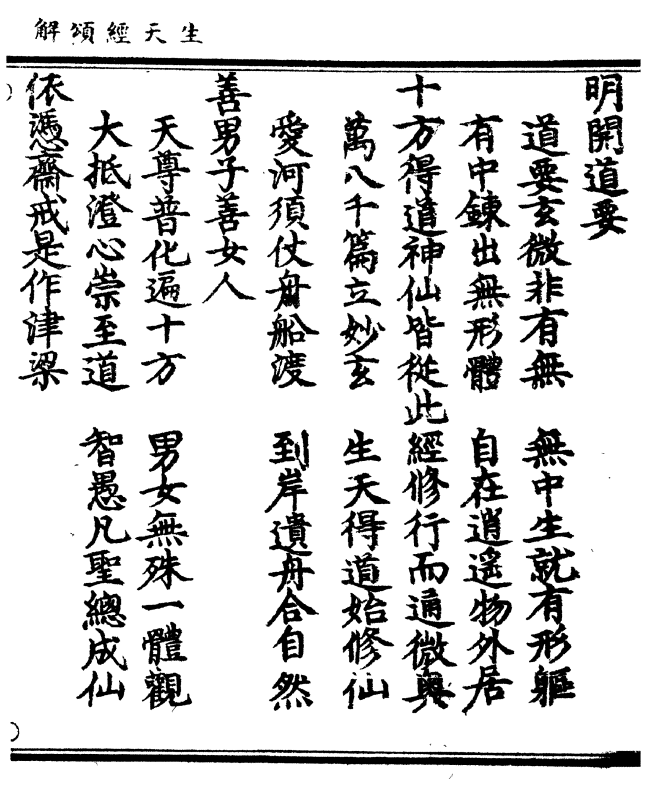 生天經頌解
明開道要
道要玄微非有無 無中生就有形軀
有中鍊出無形體 自在逍遙物外居
十方得道神仙皆從此經修行而通微奧
萬八千篇立妙玄 生天得道始修仙
愛河須仗舟船渡 到岸遺舟合自然
善男子善女人
天尊普化遍十方 男女無殊一體觀
大抵澄心崇至道 智愚凡聖總成仙
依憑齋戒是作津梁